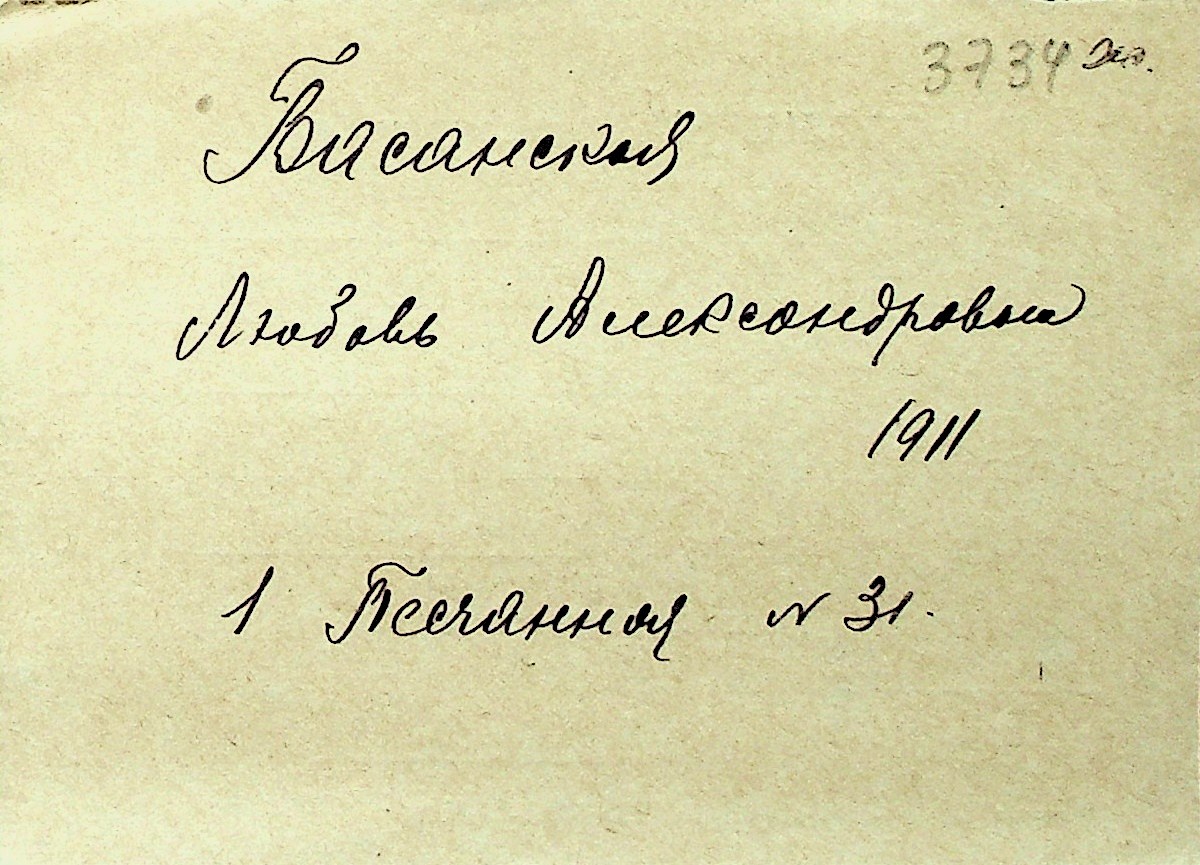 3734
Басанская
Любовь Александровна
1911
1 Песчанная N 31.